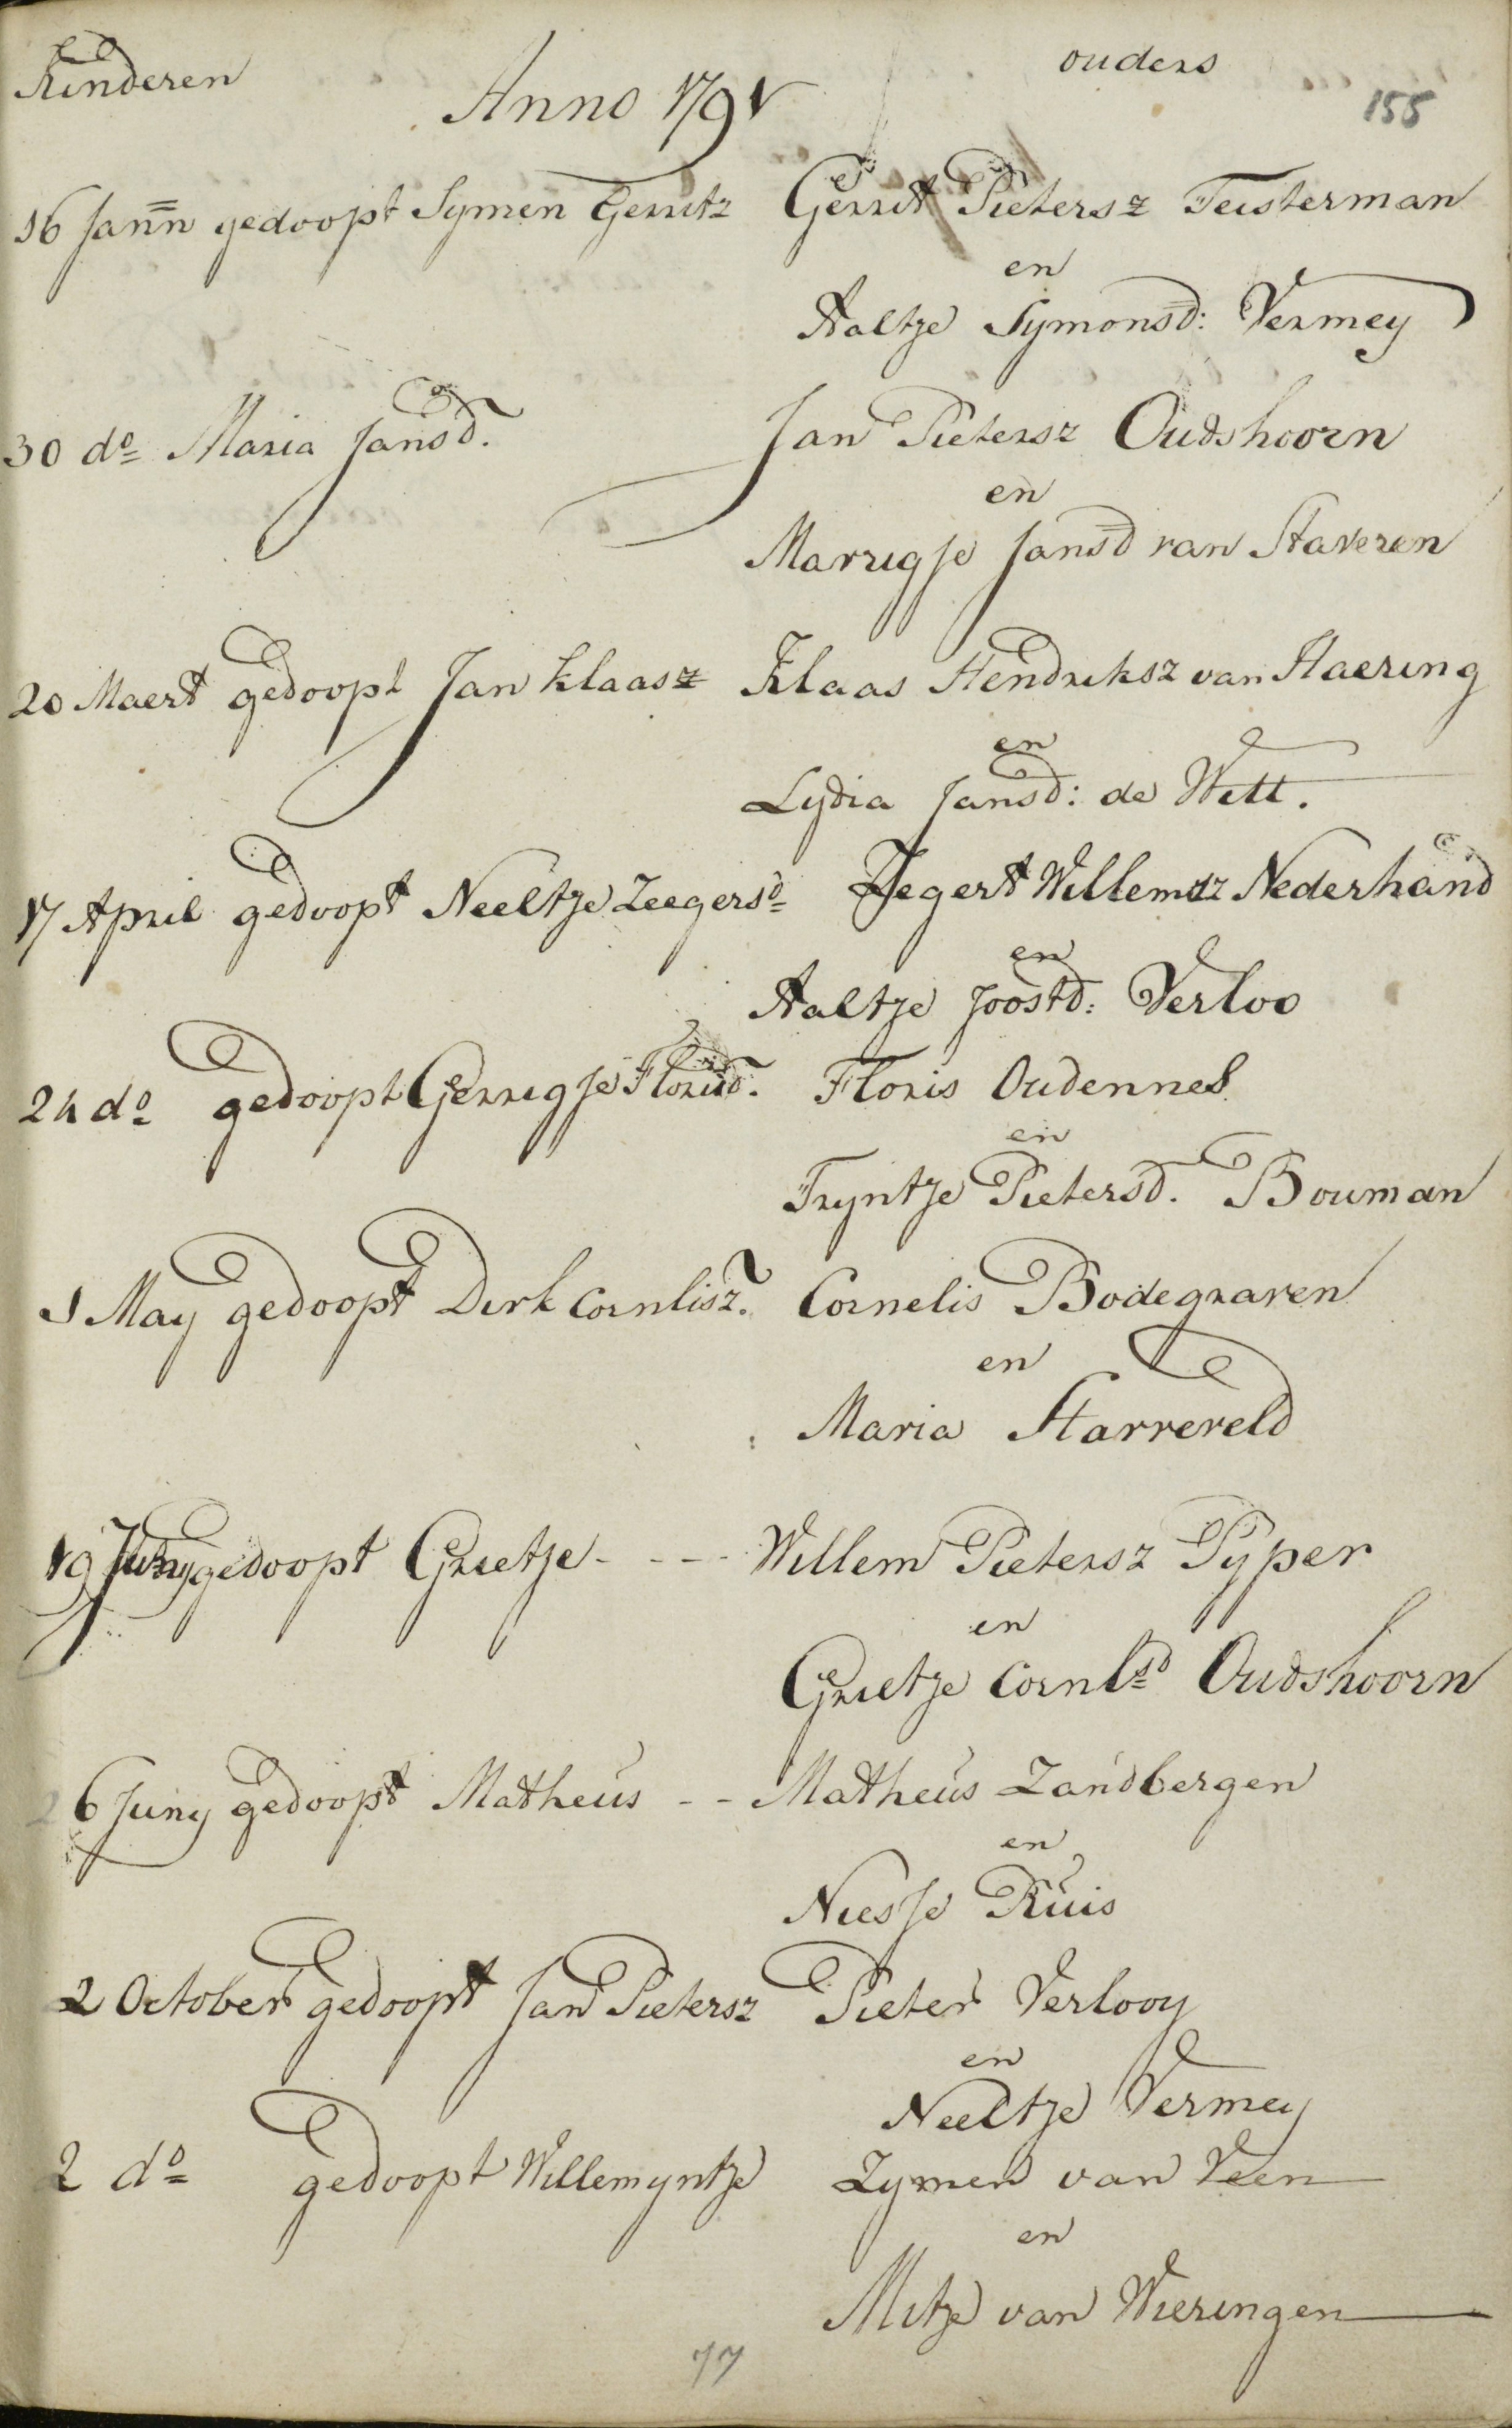 Kinderen Anno 1791 ouders
155
16 Jann gedoopt Symen Gerritz Gerrit Pietersz Teisterman
en
Aaltje Symonsd: Vermey
30 do Maria Jansd. Jan Pietersz Oudshoorn
en
Marrigje Jansd van Staveren
20 Maert gedoopt Jan Klaasz Klaas Hendriksz van Staering
en
Lydia Jansd: de Witt.
17 April gedoopt Neeltje Zeegersd Zegert Willemsz Nederhand
en
Aaltje Joostd: Verloo
24 do gedoopt Gerrigje Florisd. Floris Oudennes
en
Tryntje Pietersd. Bouman
1 May gedoopt Dirk Cornlisz. Cornelis Bodegraven
en
Maria Starreveld
19 Juny gedoopt Grietje - - - - Willem Pietersz Pyper
en
Grietje Cornlsd Oudshoorn
26 Juny gedoopt Matheus - - Matheus Zandbergen
en
Niesje Ruis
2 October gedoopt Jan Pietersz Pieter Verlooy
en
Neeltje Vermey
2 do gedoopt Willemyntje Zymen van Veen
en
Mitje van Wieringen
77